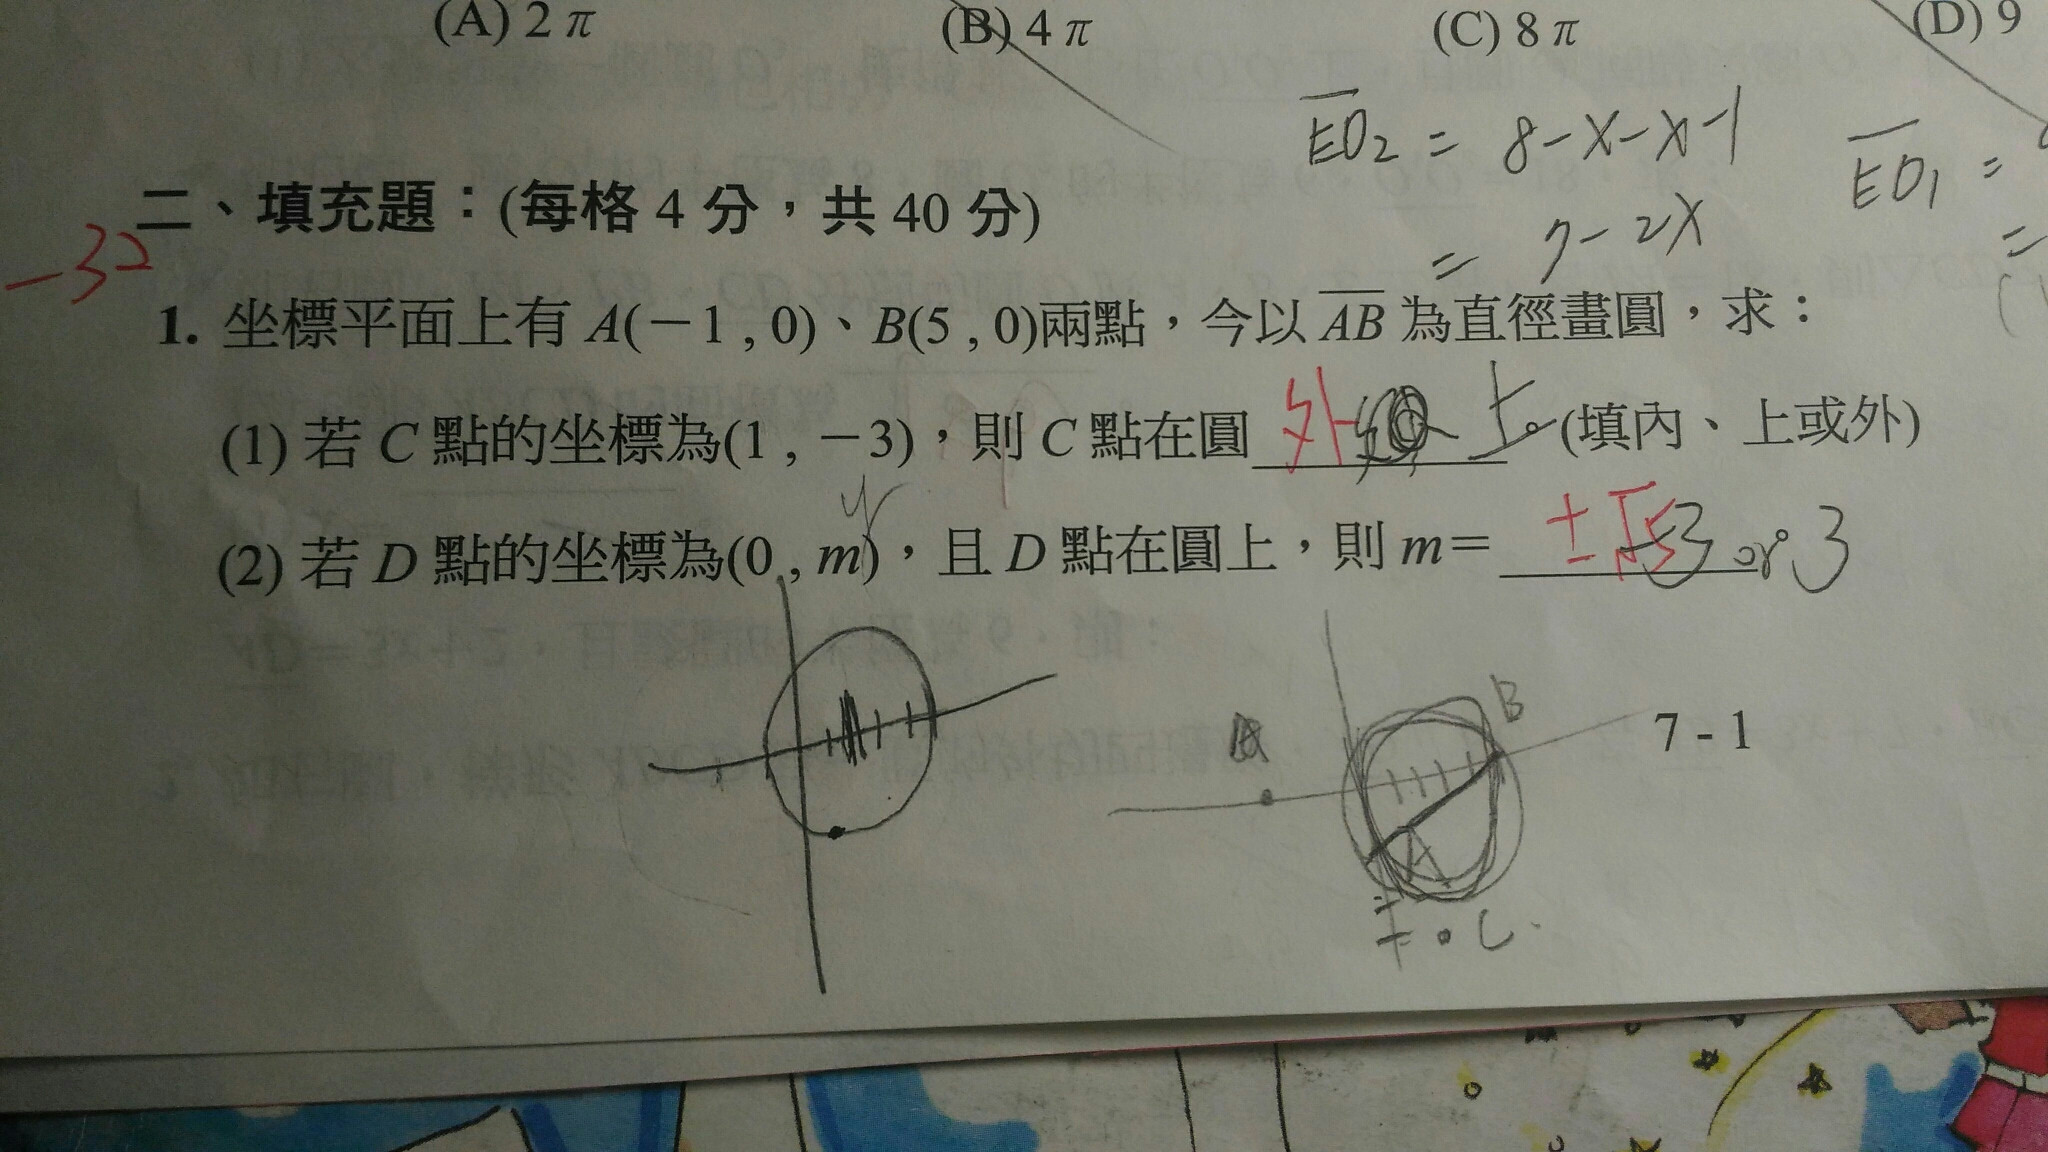 (A) 2 π (B) 4 π (C) 8 π (D) 9
ED₂ = 8-x-x-1
= 7-2x
ED₁ =
=
二、填充題：(每格 4 分，共 40 分)
-32
1. 坐標平面上有 A(－1 , 0)、B(5 , 0)兩點，今以 AB 為直徑畫圓，求：
(1) 若 C 點的坐標為(1 , －3)，則 C 點在圓 外 上。(填內、上或外)
y
(2) 若 D 點的坐標為(0 , m)，且 D 點在圓上，則 m＝ ±√5 -3 or 3
B
A
C
7 - 1